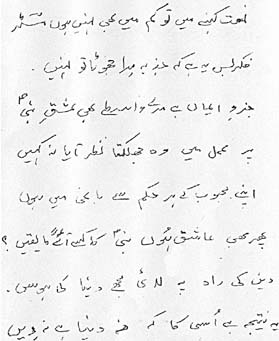 نعت کہنے میں تو کم میں بھی نہیں ہوں
فکر بس یہ ہے کہ جذبہ میرا جھوٹا تو نہیں
جزوِ ایماں ہے مرے واسطے بھی عشقِ نبیؐ
پر عمل میں وہ جھلکتا نظر آیا نہ کہیں
اپنے محبوب کے ہر حکم سے باغی میں ہوں
پھر بھی عاشق ہوں نبیؐ کا آئے گا یقیں؟
دین کی راہ پہ لائی مجھے دنیا کی ہوس
یہ نتیجہ ہے اُسی کا کہ نہ دنیا ہے نہ دیں